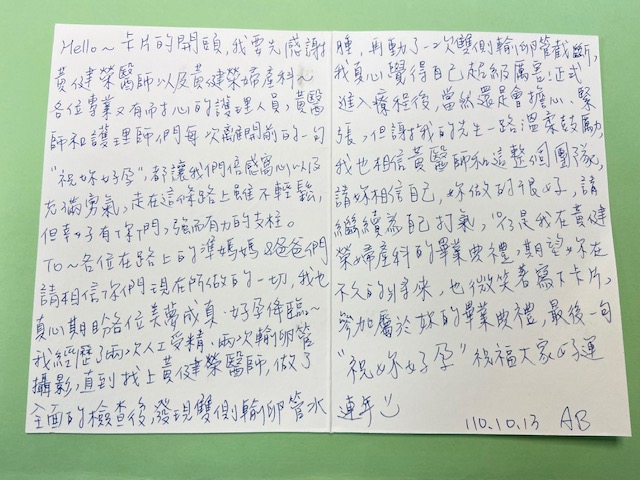 Hello~ 卡片的開頭,我要先感謝
黃健榮醫師以及黃健榮婦產科~
各位專業又有耐心的護理人員,黃醫
師和護理師們每次離開前的一句
"祝妳好孕",都讓我們倍感窩心以及
充滿勇氣,走在這條路上雖不輕鬆,
但幸好有你們,強而有力的支柱。
To~各位在路上的準媽媽&爸爸們
請相信你們現在所做的一切,我也
真心期盼各位美夢成真,好孕降臨~
我經歷了兩次人工受精,兩次輸卵管
攝影,直到找上黃健榮醫師,做了
全面的檢查後,發現雙側輸卵管水
腫,再動了一次雙側輸卵管截斷,
我真心覺得自己超級厲害!正式
進入療程後,當然還是會擔心、緊
張,但謝謝我的先生一路溫柔鼓勵,
我也相信黃醫師和這整個團隊,
請妳相信自己,妳做的很好,請
繼續為自己打氣,今是我在黃健
榮婦產科的畢業典禮,期望妳在
不久的將來,也微笑著寫下卡片,
參加屬於妳的畢業典禮,最後一句
"祝妳好孕" 祝福大家好運
連年
110.10.13 AB